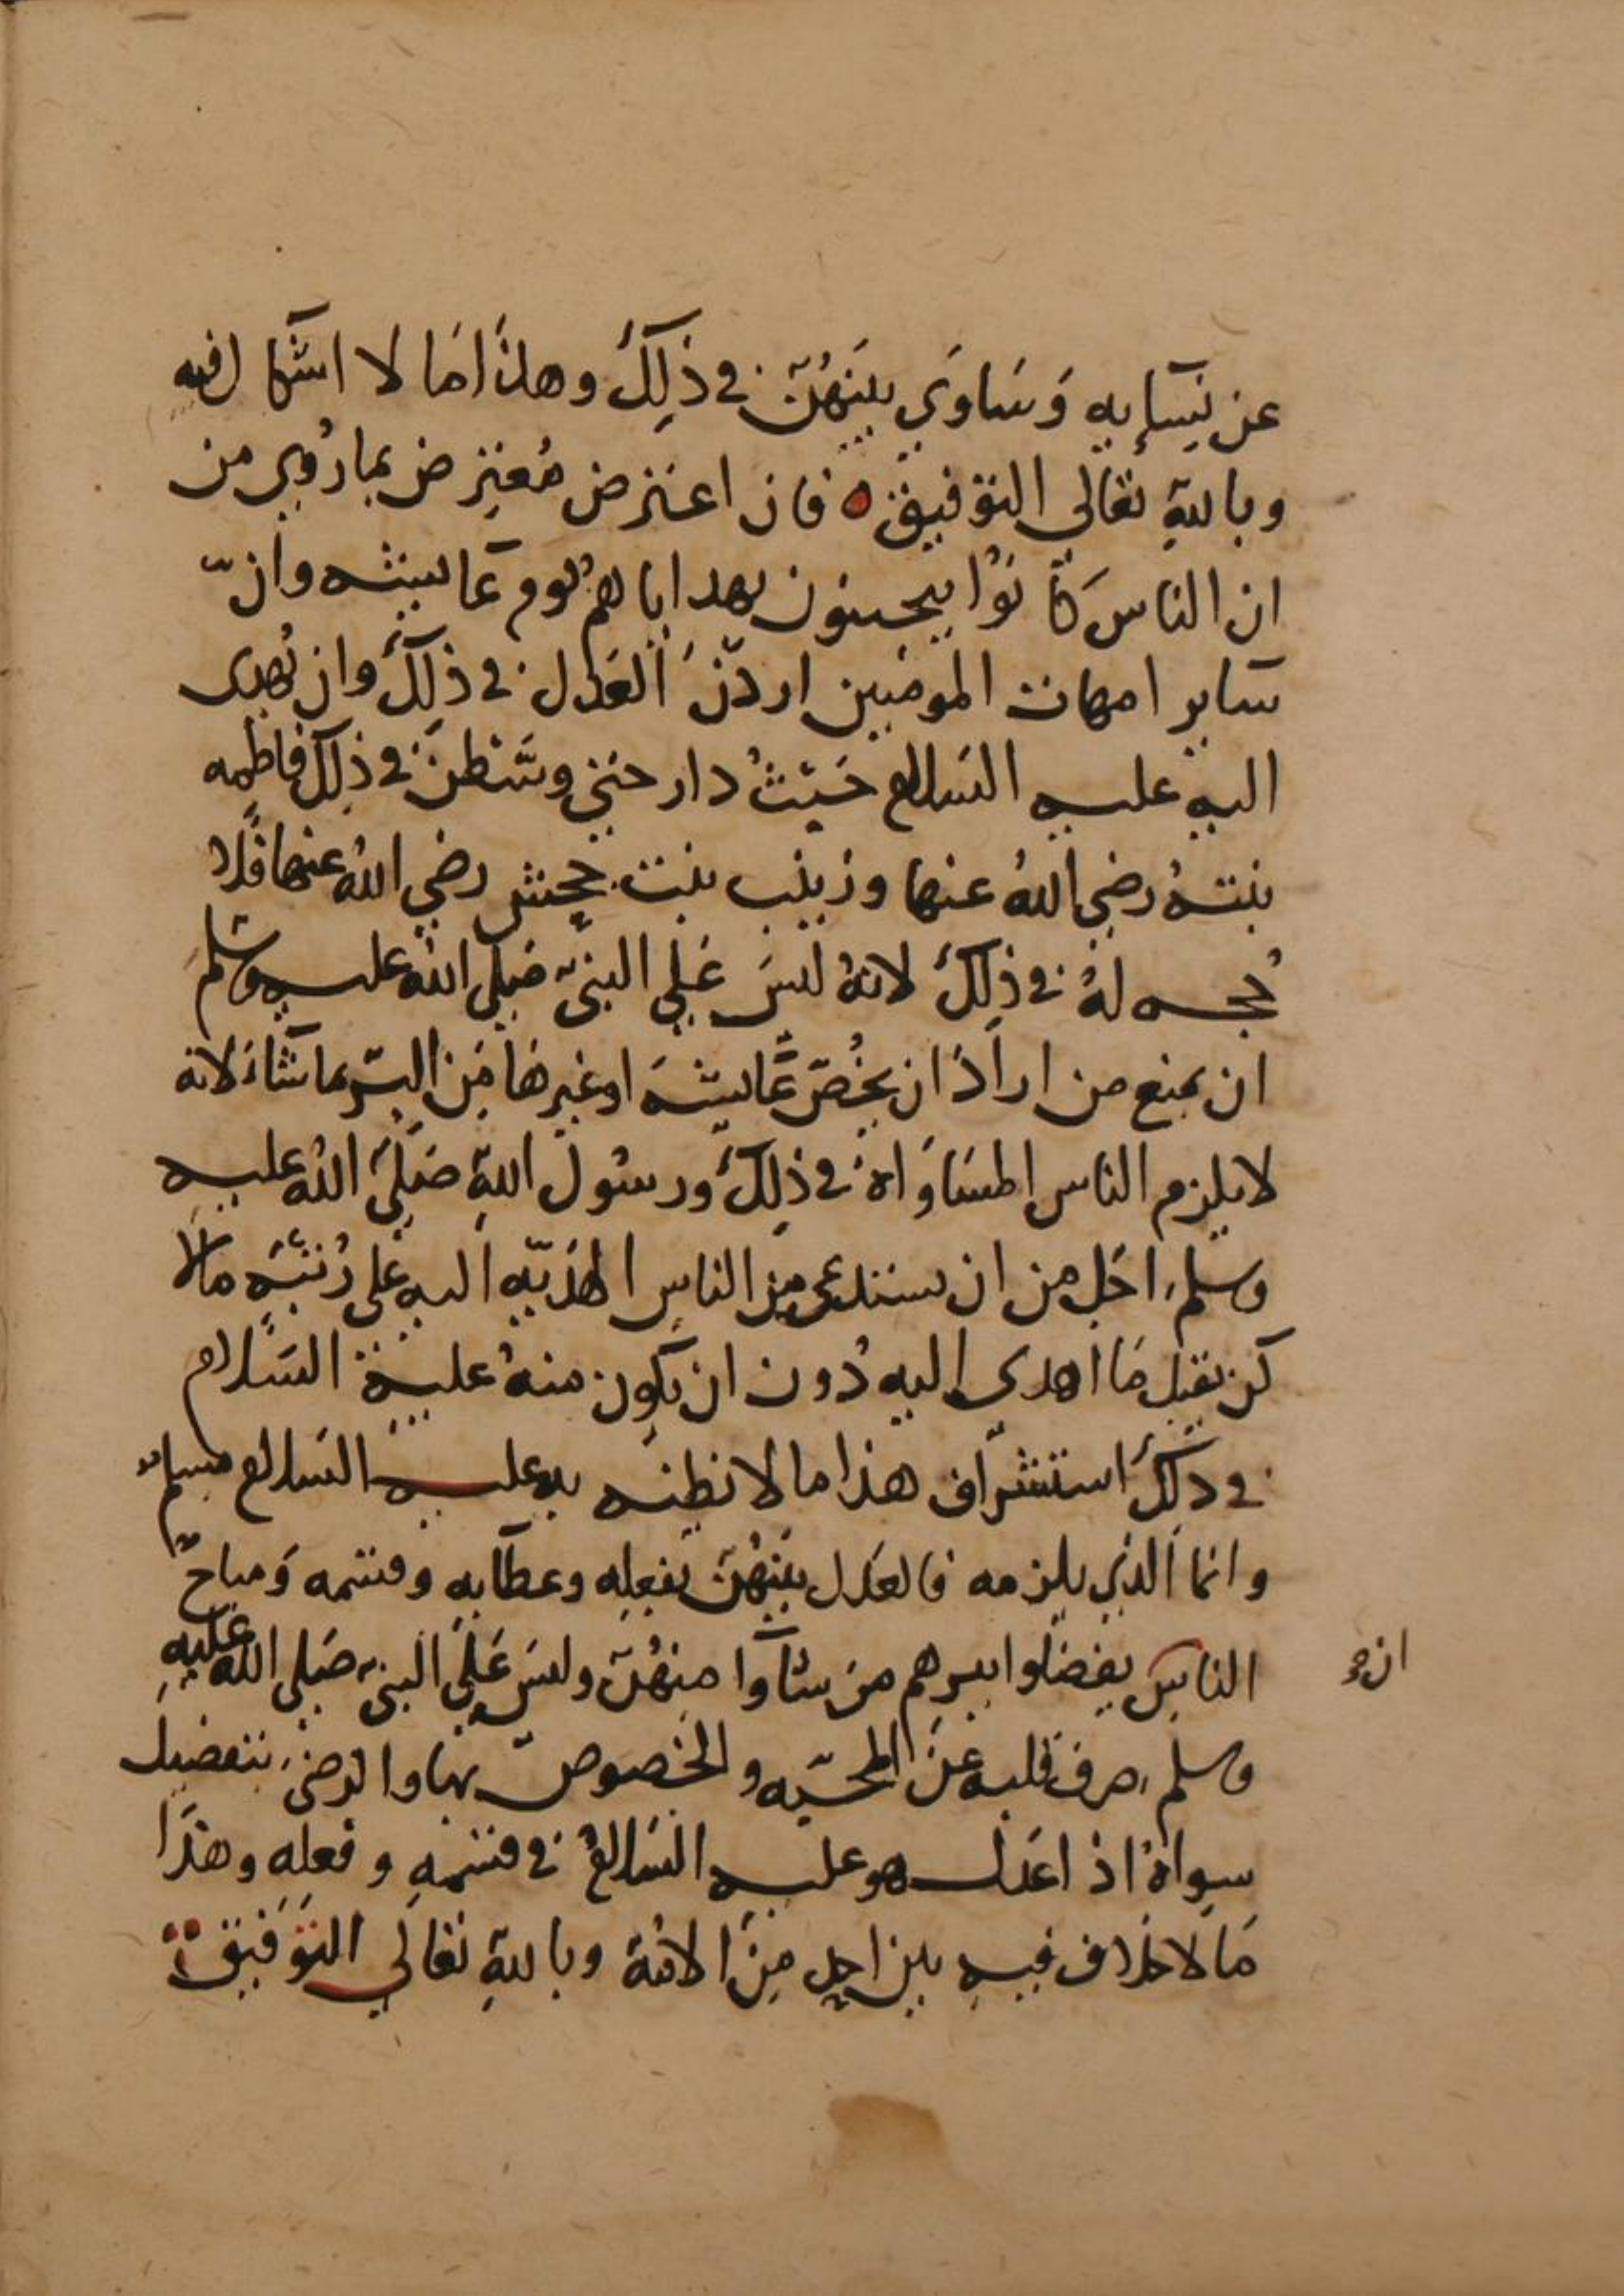 عن نسايه وساوى بينهن في ذلك وهذا ما لا اشكال فيه
وبالله تعالى التوفيق ه فان اعترض معترض بما روي من
ان الناس كانوا يحينون بهداياهم يوم عايشه وان
ساير امهات المومنين اردن العدل في ذلك وان يهدى
اليه عليه السلام حيث دار حتى وسطن في ذلك فاطمه
بنته رضي الله عنها وزينب بنت جحش رضي الله عنها فلا
حجه له في ذلك لانه ليس على النبي صلى الله عليه وسلم
ان يمنع من اراد ان يخص عايشه او غيرها من البر بما شاء لانه
لا يلزم الناس المساواه في ذلك ورسول الله صلى الله عليه
وسلم اجل من ان يستدعى من الناس الهديه اليه على رتبه مالا
كن يقبل ما اهدى اليه دون ان يكون منه عليه السلام
في ذلك استشراف هذا ما لا نظنه به عليه السلام مسلم
وانما الذي يلزمه فالعدل بينهن بفعله وعطايه وقسمه ومباح
الناس يفضلوا ببرهم من شاوا منهن وليس على النبي صلى الله عليه
ان
وسلم صرف قلبه عن المحبه والخصوص بها والرضى بتفضيل
سواه اذ اعدل هو عليه السلام في قسمه وفعله وهذا
ما لا خلاف فيه بين احد من الامة وبالله تعالى التوفيق